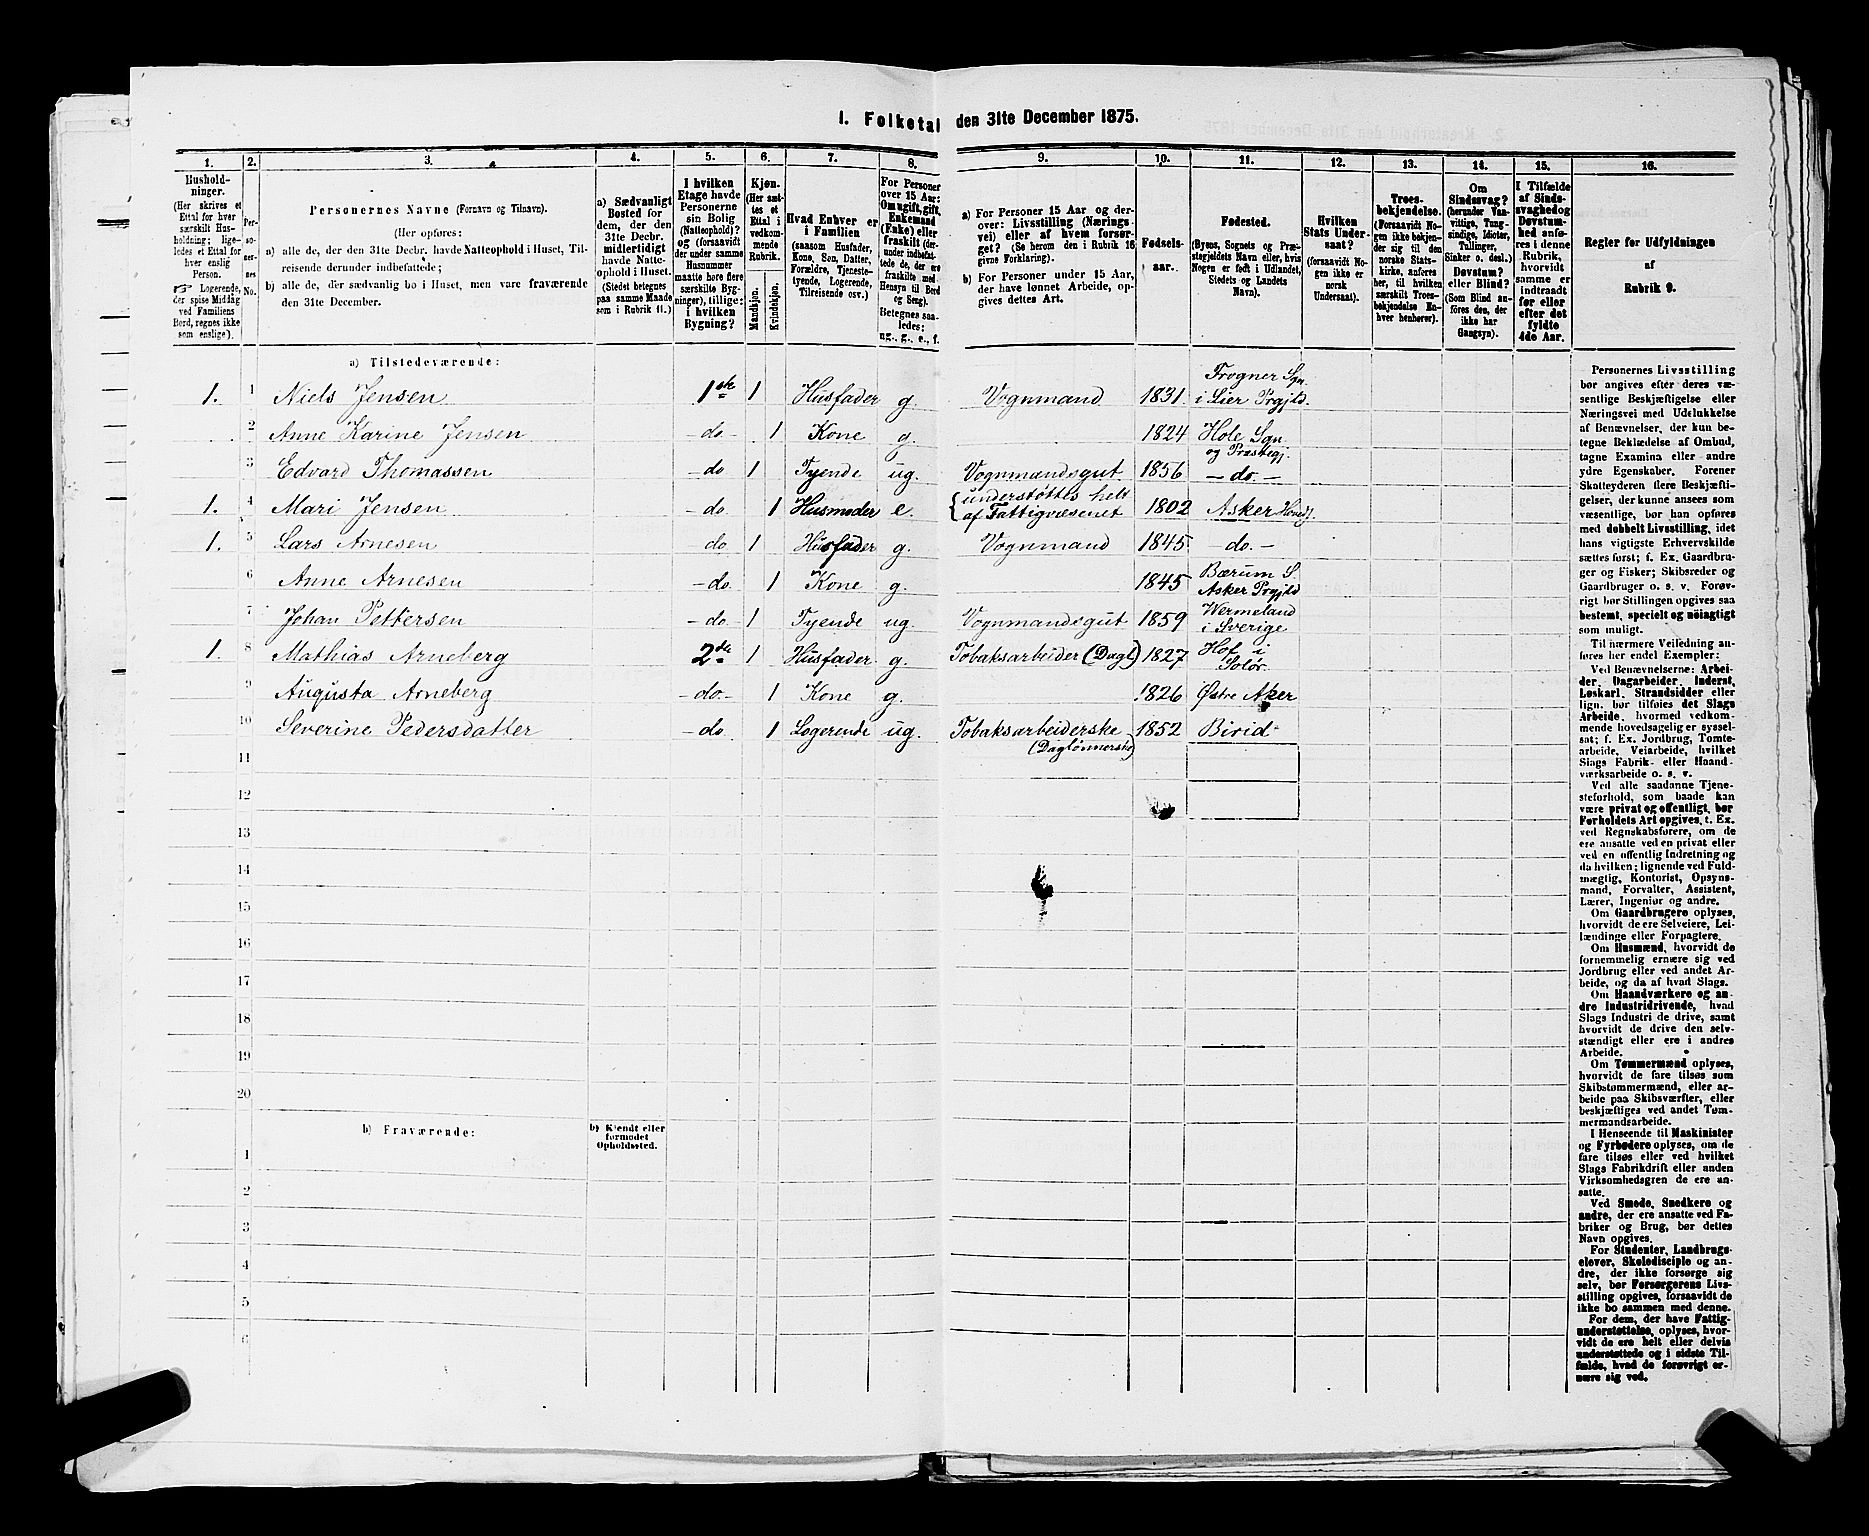 1. Folketal den 31te December 1875.
1.
Hushold-
ninger.
(Her skrives et
Ettal for hver
særskilt Hus-
holdning; lige-
ledes et Ettal for
hver enslig
Person.
☞ Logerende,
der spise Middag
ved Familiens
Bord, regnes ikke
som enslige).
2.
Per-
so-
ner-
nes
No.
3.
Personernes Navne (Fornavn og Tilnavn).
(Her opføres:
a) alle de, der den 31te Decbr. havde Natteophold i Huset, Til-
reisende derunder indbefattede;
b) alle de, der sædvanlig bo i Huset, men vare fraværende
den 31te December.
4.
a) Sædvanligt
Bosted for
dem, der den
31te Decbr.
midlertidigt
havde Natte-
ophold i Huset.
(Stedet betegnes
paa samme Maade
som i Rubrik 11.)
5.
I hvilken
Etage havde
Personerne
sin Bolig
(Natteophold)?
og (forsaavidt
der under samme
Husnummer
maatte høre flere
særskilte Byg-
ninger), tillige:
i hvilken
Bygning?
6.
Kjøn.
(Her sæt-
tes et
Ettal i
vedkom-
mende
Rubrik.
Mandkjøn.
Kvindekjøn.
7.
Hvad Enhver er
i Familien
(saasom Husfader,
Kone, Søn, Datter,
Forældre, Tjeneste-
tyende, Logerende,
Tilreisende osv.)
8.
For Personer
over 15 Aar:
Om ugift, gift,
Enkemand
(Enke) eller
fraskilt (der-
under indbefat-
tede de, der ere
fraskilte med
Hensyn til Bord
og Seng).
Betegnes saa-
ledes:
ug., g., e., f.
9.
a) For Personer 15 Aar og der-
over: Livsstilling (Nærings-
vei) eller af hvem forsør-
get? (Se herom den i Rubrik 16
givne Forklaring).
b) For Personer under 15 Aar,
der have lønnet Arbeide, op-
gives dettes Art.
10.
Fødsels-
aar.
11.
Fødested.
(Byens, Sognets og Præ-
stegjeldets Navn eller, hvis
Nogen er født i Udlandet,
Stedets og Landets
Navn).
12.
Hvilken
Stats Under-
saat?
(forsaavidt No-
gen ikke er
norsk
Undersaat).
13.
Troes-
bekjendelse.
(Forsaavidt No-
gen ikke bekjen-
der sig til den
norske Stats-
kirke, anføres
her, til hvilken
særskilt Troes-
bekjendelse En-
hver henhører).
14.
Om
Sindssvag?
(herunder Van-
vittige, Tung-
sindige, Idioter,
Tullinger,
Sinker o. desl.)
Døvstum?
eller Blind?
(Som Blind an-
føres den, der
ikke har
Gangsyn).
15.
I Tilfælde
af Sinds-
svaghed og
Døvstum-
hed anfø-
res i denne
Rubrik,
hvorvidt
samme er
indtraadt
før eller
efter det
fyldte
4de Aar.
16.
Regler for Udfyldningen
af
Rubrik 9.
a) Tilstedeværende:
1. 1 Niels Jensen 1ste 1 Husfader g. Vognmand 1831 Frogner Sgn. i Lier Prgjld.
2 Anne Karine Jensen - do - 1 Kone g. 1824 Hole Sgn. og Præstegj.
3 Edvard Thomassen - do 1 Tyende ug. Vognmandsgut 1856 - do. -
1. 4 Mari Jensen - do. 1 Husmoder e. {understøttes helt af Fattigvæsenet 1802 Asker
1. 5 Lars Arnesen do 1 Husfader g. Vognmand 1845 - do. -
6 Anne Arnesen - do. 1 Kone g. 1845 Bærum S. Asker Prgjld
7 Johan Pettersen - do. - 1 Tyende ug. Vognmandsgut 1859 Wermeland i Sverige
1. 8 Mathias Arneberg 2den 1 Husfader g. Tobaksarbeider (Dagl.) 1827 Hof i Solør.
9 Augusta Arneberg - do. - 1 Kone g. 1826 Østre Aker
10 Severine Pedersdatter - do. 1 Logerende ug. Tobaksarbeiderske (Daglønnerske) 1852 Birid
11
12
13
14
15
16
17
18
19
20
b) Fraværende:
b) Kjendt eller
formodet
Opholdssted.
1
2
3
4
5
6
Personernes Livsstilling
bør angives efter deres væ-
sentlige Beskjæftigelse eller
Næringsvei med Udelukkelse
af Benævnelser, der kun be-
tegne Beklædelse af Ombud,
tagne Examina eller andre
ydre Egenskaber. Forener
Skatteyderen flere Beskjæfti-
gelser, der kunne ansees som
væsentlige, bør han opføres
med dobbelt Livsstilling, idet
hans vigtigste Erhvervskilde
sættes først; f. Ex. Gaardbru-
ger og Fisker; Skibsreder og
Gaardbruger o. s. v. Forøv-
rigt bør Stillingen opgives saa
bestemt, specielt og nøiagtigt
som muligt.
Til nærmere Veiledning an-
føres her endel Exempler:
Ved Benævnelserne: Arbei-
der, Dagarbeider, Inderst,
Løskarl, Strandsidder eller
lign. bør tilføies det Slags
Arbeide, hvormed vedkom-
mende hovedsagelig er syssel-
sat; f. Ex. Jordbrug, Tomte-
arbeide, Veiarbeide, hvilket
Slags Fabrik- eller Haand-
værksarbeide o. s. v.
Ved alle saadanne Tjene-
steforhold, som baade kan
være privat og offentligt, bør
Forholdets Art opgives, t. Ex.
ved Regnskabsførere, om de
ere ansatte ved en privat eller
ved en offentlig Indretning og
da hvilken; lignende ved Fuld-
mægtig, Kontorist, Opsyns-
mand, Forvalter, Assistent,
Lærer, Ingeniør og andre.
Om Gaardbrugere oplyses,
hvorvidt de ere Selveiere, Lei-
lændinge eller Forpagtere.
Om Husmænd, hvorvidt de
fornemmelig ernære sig ved
Jordbrug eller ved andet Ar-
beide, og da af hvad Slags.
Om Haandværkere og an-
dre Industridrivende, hvad
Slags Industri de drive, samt
hvorvidt de drive den selv-
stændigt eller ere i andres
Arbeide.
Om Tømmermænd oplyses,
hvorvidt de fare tilsøs som
Skibstømmermænd, eller ar-
beide paa Skibsværfter, eller
beskjæftiges ved andet Tøm-
mermandsarbeide.
I Henseende til Maskinister
og Fyrbødere oplyses, om de
fare tilsøs eller ved hvilket
Slags Fabrikdrift eller anden
Virksomhedsgren de ere an-
satte.
Ved Smede, Snedkere og
andre, der ere ansatte ved Fa-
briker og Brug, bør dettes
Navn opgives.
For Studenter, Landbrugs-
elever, Skoledisciple og an-
dre, der ikke forsørge sig
selv, bør Forsørgerens Livs-
stilling opgives, forsaavidt de
ikke bo sammen med denne.
For dem, der have Fattig-
understøttelse, oplyses, hvor-
vidt de ere helt eller delvis
understøttede og i sidste Til-
fælde, hvad de forøvrigt er-
nære sig ved.